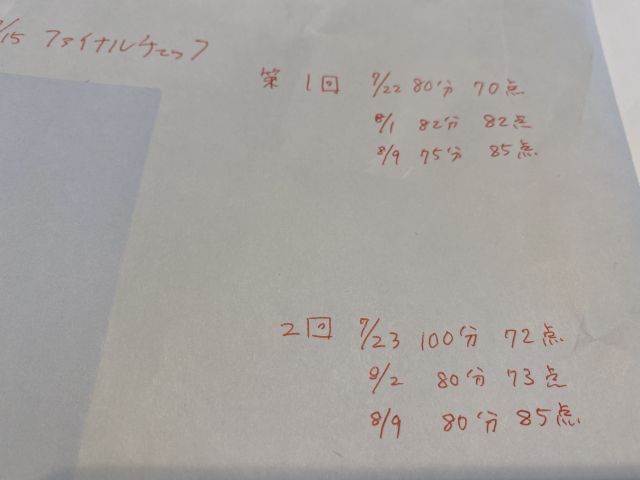 /15 ファイナルチェック
第1回 7/22 80分 70点
8/1 82分 82点
8/9 75分 85点
2回 7/23 100分 72点
8/2 80分 73点
8/9 80分 85点